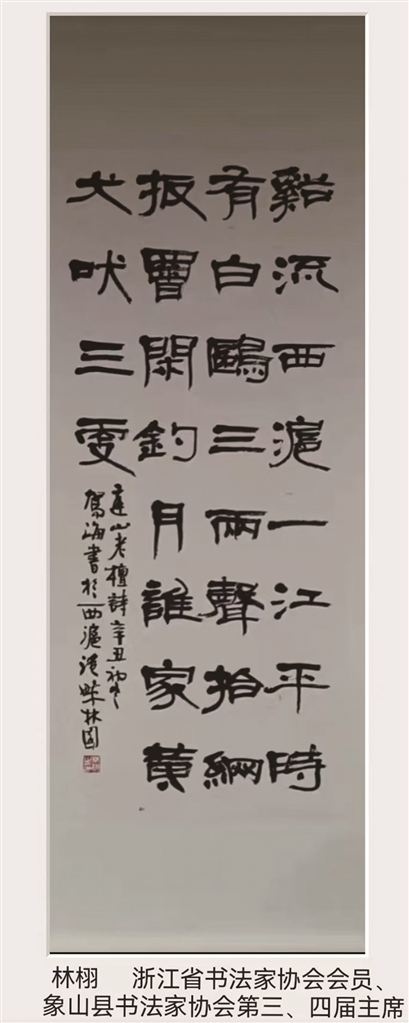 谿流西滬一江平時
有白鷗三兩聲拾網
扳罾閑釣月誰家黄
犬吠三更
山老檀詩辛丑初冬
海書於西滬港畔林園
林栩 浙江省书法家协会会员、
象山县书法家协会第三、四届主席